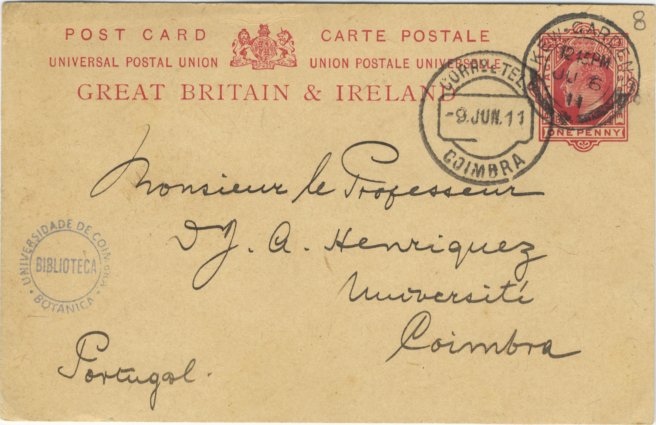 8
POST CARD CARTE POSTALE
UNIVERSAL POSTAL UNION UNION POSTALE UNIVERSELLE
GREAT BRITAIN & IRELAND
KEW-GARDENS
JU 6
11
ONE PENNY
-9.JUN.11
COIMBRA
Monsieur le Professeur
D J. A. Henriquez
Université
Coimbra
Portugal.
UNIVERSIDADE DE COIMBRA
BIBLIOTECA
BOTANICA